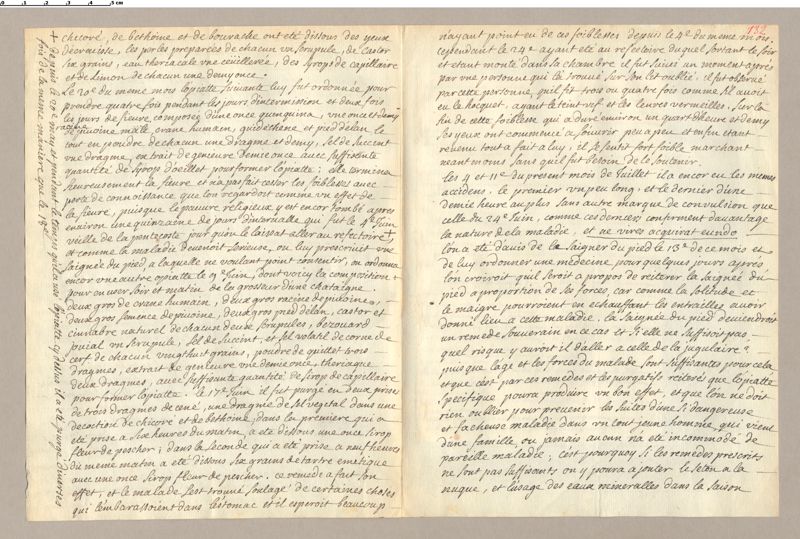 chicoré, de bethoine et de bourache ont été dissous des yeux
d'ecravisse, les perles preparées de chacun un scrupule, de castor
six grains, eau theriacale une ceuillerée, des syrops de capillaire
et de Limon de chacun une demy once.
Le 20e du meme mois lopiatte suivante luy fut ordonnée pour
prendre quatre fois pendant les jours d'intermission et deux fois
les jours de fievre, composée d'une once quinquina, une once et demy
de pivoine male crane humain, guidethene et pied delan le
tout en poudre de chacun une dragme et demy, sel de succint
une dragme, extrait de genevre demie once avec suffisante
quantité de sirops d'oeillet pour former lopiatte: elle termina
heureusement la fievre et n'a pas fait cesser les foiblesses avec
perte de connoissance que lon regardoit comme un effet de
la fievre, puisque le pauvre religieux y est encor tombé apres
environ une quinzaine de jours d'intervalle qui fut le 4e juin
veille de la pentecoste jour qu'on le laissat aller au refectoire
et comme la maladie devenoit serieuse, on luy prescrivit une
saignée du pied, a laquelle ne voulant point consentir, on ordonna
encor une autre opiatte le 9e juin, dont voicy la composition
pour en user soir et matin de la grosseur d'une chataigne.
deux gros de crane humain, deux gros racine de pivoine,
deux gros semence de pivoine, deux gros pied delan, castor et
cinnabre naturel de chacun deux scrupules, bezouard
jovial un scrupule, sel de succint, et sel volatil de corne de
cerf de chacun vingt huit grains, poudre de guttet trois
dragmes, extrait de genievre une demie once, theriaque
deux dragmes, avec suffisante quantité de sirop de capillaire
pour former lopiatte. le 17e juin il fut purgé en deux prises
de trois dragmes de cené, une dragme de sel vegetal dans une
decoction de chicoré et de bethoine, dans la premiere qui a
eté prise a six heures du matin a eté dissous une once sirop
fleur de pescher; dans la seconde qui a eté prise a neuf heures
du meme matin a eté dissous six grains de tartre emetique
avec une once sirop fleur de pescher. ce remede a fait son
effet, et le malade s'est trouvé soulagé de certaines choses
qui l'embarassoient dans lestomac et il esperoit beaucoup
132
n'ayant point eu de ces foiblesses depuis le 4e du meme mois.
cependant le 24e ayant eté au refectoire duquel sortant le soir
et etant monté dans sa chambre il fut suivi un moment apres
par une personne qui le trouva sur son lit oublié, il fut observé
par cette personne, qu'il fit trois ou quatre fois comme s'il avoit
eu le hocquet, ayant le teint vif et les levres vermeilles, sur la
fin de cette foiblesse qui a duré environ un quart d'heure et demy
ses yeux ont commencé a s'ouvrir peu a peu et enfin etant
revenu tout a fait a luy, il se sentit fort foible marchant
neant moins sans quil fut besoin de le soutenir.
les 4 et 11e du present mois de juillet il a encor eu les memes
accidens, le premier un peu long, et le dernier d'une
demie heure au plus sans autre marque de convulsion que
celle du 24e juin, comme ces derniers confirment davantage
la nature de la maladie, et ne vires acquirat eundo
lon a eté d'avis de le saigner du pied le 13e de ce mois et
de luy ordonner une médecine pour quelques jours apres
lon croiroit quil seroit a propos de reiterer la saignée du
pied a proportion de ses forces, car comme la solitude et
le maigre pourroient en echauffant les entrailles avoir
donné lieu a cette maladie. la saignée du pied deviendroit
un remede souverain en ce cas et si elle ne suffisoit pas
quel risque y auroit il d'aller a celle de la jugulaire?
puisque l'age et les forces du malade sont suffisantes pour cela
et que c'est par ces remedes et les purgatifs reiterés que lopiatte
specifique poura produire un bon effet, et que lon ne doit
rien oublier pour prevenir les suites d'une si dangereuse
et facheuse maladie dans un tout jeune homme, qui vient
d'une famille, ou jamais aucun n'a eté incommodé de
pareille maladie; c'est pourquoy si les remedes prescrits
ne sont pas suffisants on y poura ajouter le seton a la
nuque, et l'usage des eaux mineralles dans la saison